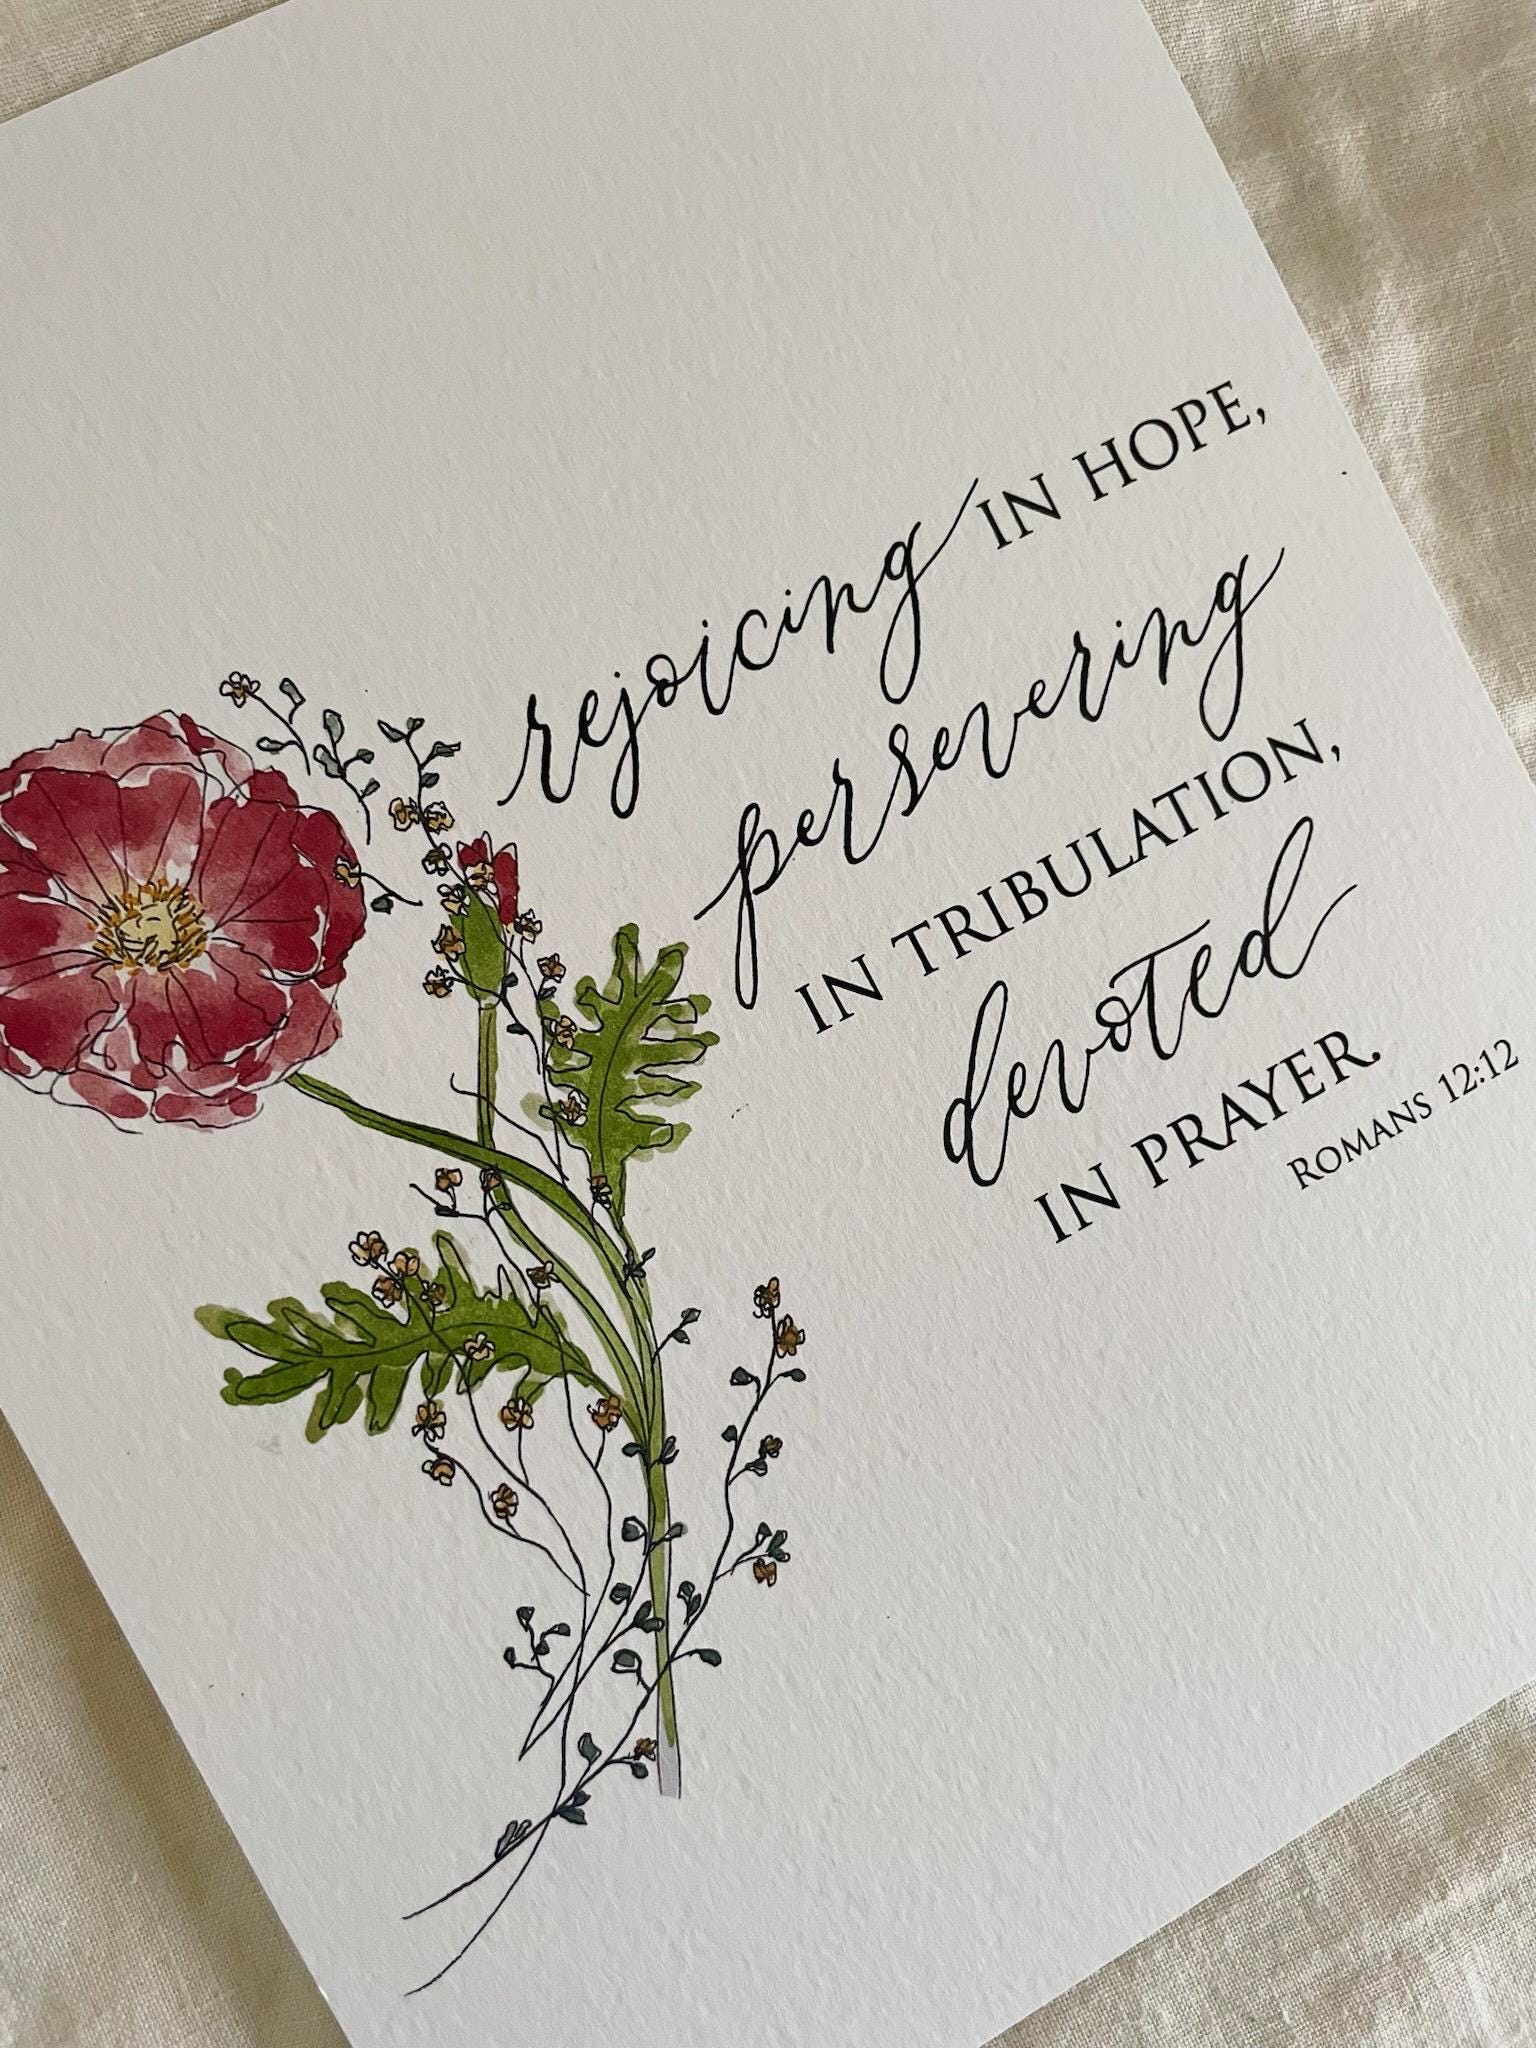 rejoicing IN HOPE,
persevering
IN TRIBULATION,
devoted
IN PRAYER.
ROMANS 12:12